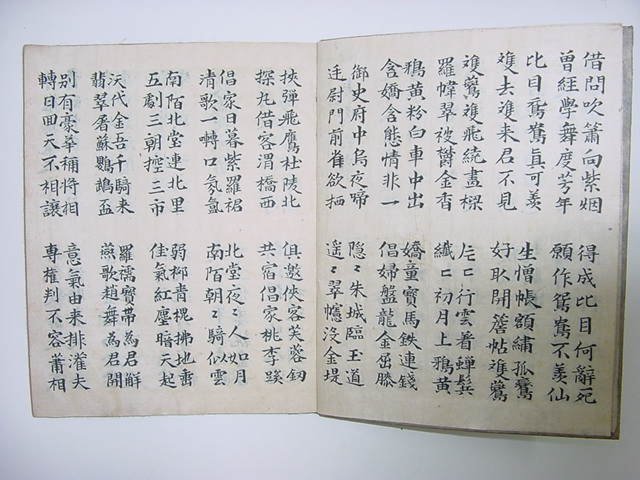 借問吹簫向紫姻
曾經學舞度芳年
得成比目何辭死
願作鴛鴦不羨仙
比目鴛鴦真可羨
雙去雙来君不見
生憎帳額繡孤鸞
好取開簾帖雙鷰
雙鷰雙飛繞畫樑
羅幃翠被鬱金香
片〻行雲著蟬鬢
纖〻初月上鴉黃
鴉黃粉白車中出
含嬌含態情非一
嬌童寶馬鐵連錢
倡婦盤龍金屈膝
御史府中烏夜啼
廷尉門前雀欲栖
隱〻朱城臨玉道
遥〻翠幰沒金堤
挾彈飛鷹杜陵北
探丸借客渭橋西
俱邀俠客芙蓉劔
共宿倡家桃李蹊
倡家日暮紫羅裙
清歌一轉口氛氳
北堂夜〻人如月
南陌朝〻騎似雲
南陌北堂連北里
五劇三朝控三市
弱柳青槐拂地垂
佳氣紅塵暗天起
汱代金吾千騎来
翡翠屠蘇鸚鵡盃
羅襦寶帶為君解
燕歌趙舞為君開
别有豪華稱将相
轉日回天不相讓
意氣由来排灌夫
專權判不容蕭相